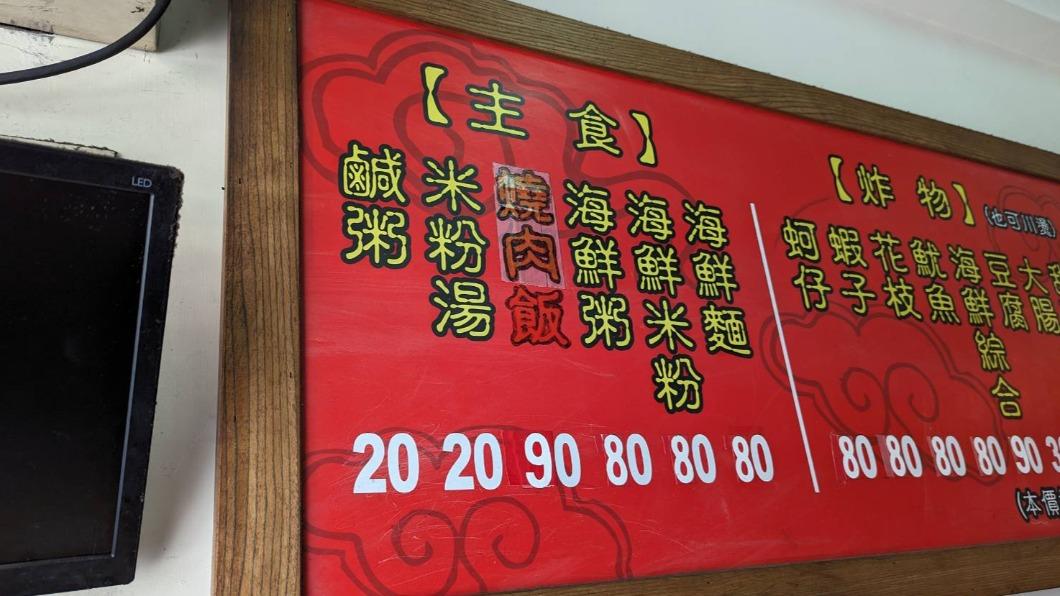 LED
【主食】
鹹粥
米粉湯
燒肉飯
海鮮粥
海鮮米粉
海鮮麵
20 20 90 80 80 80
【炸物】(也可川燙)
蚵仔
蝦子
花枝
魷魚
海鮮綜合
豆腐
大腸
80 80 80 80 90
(本價